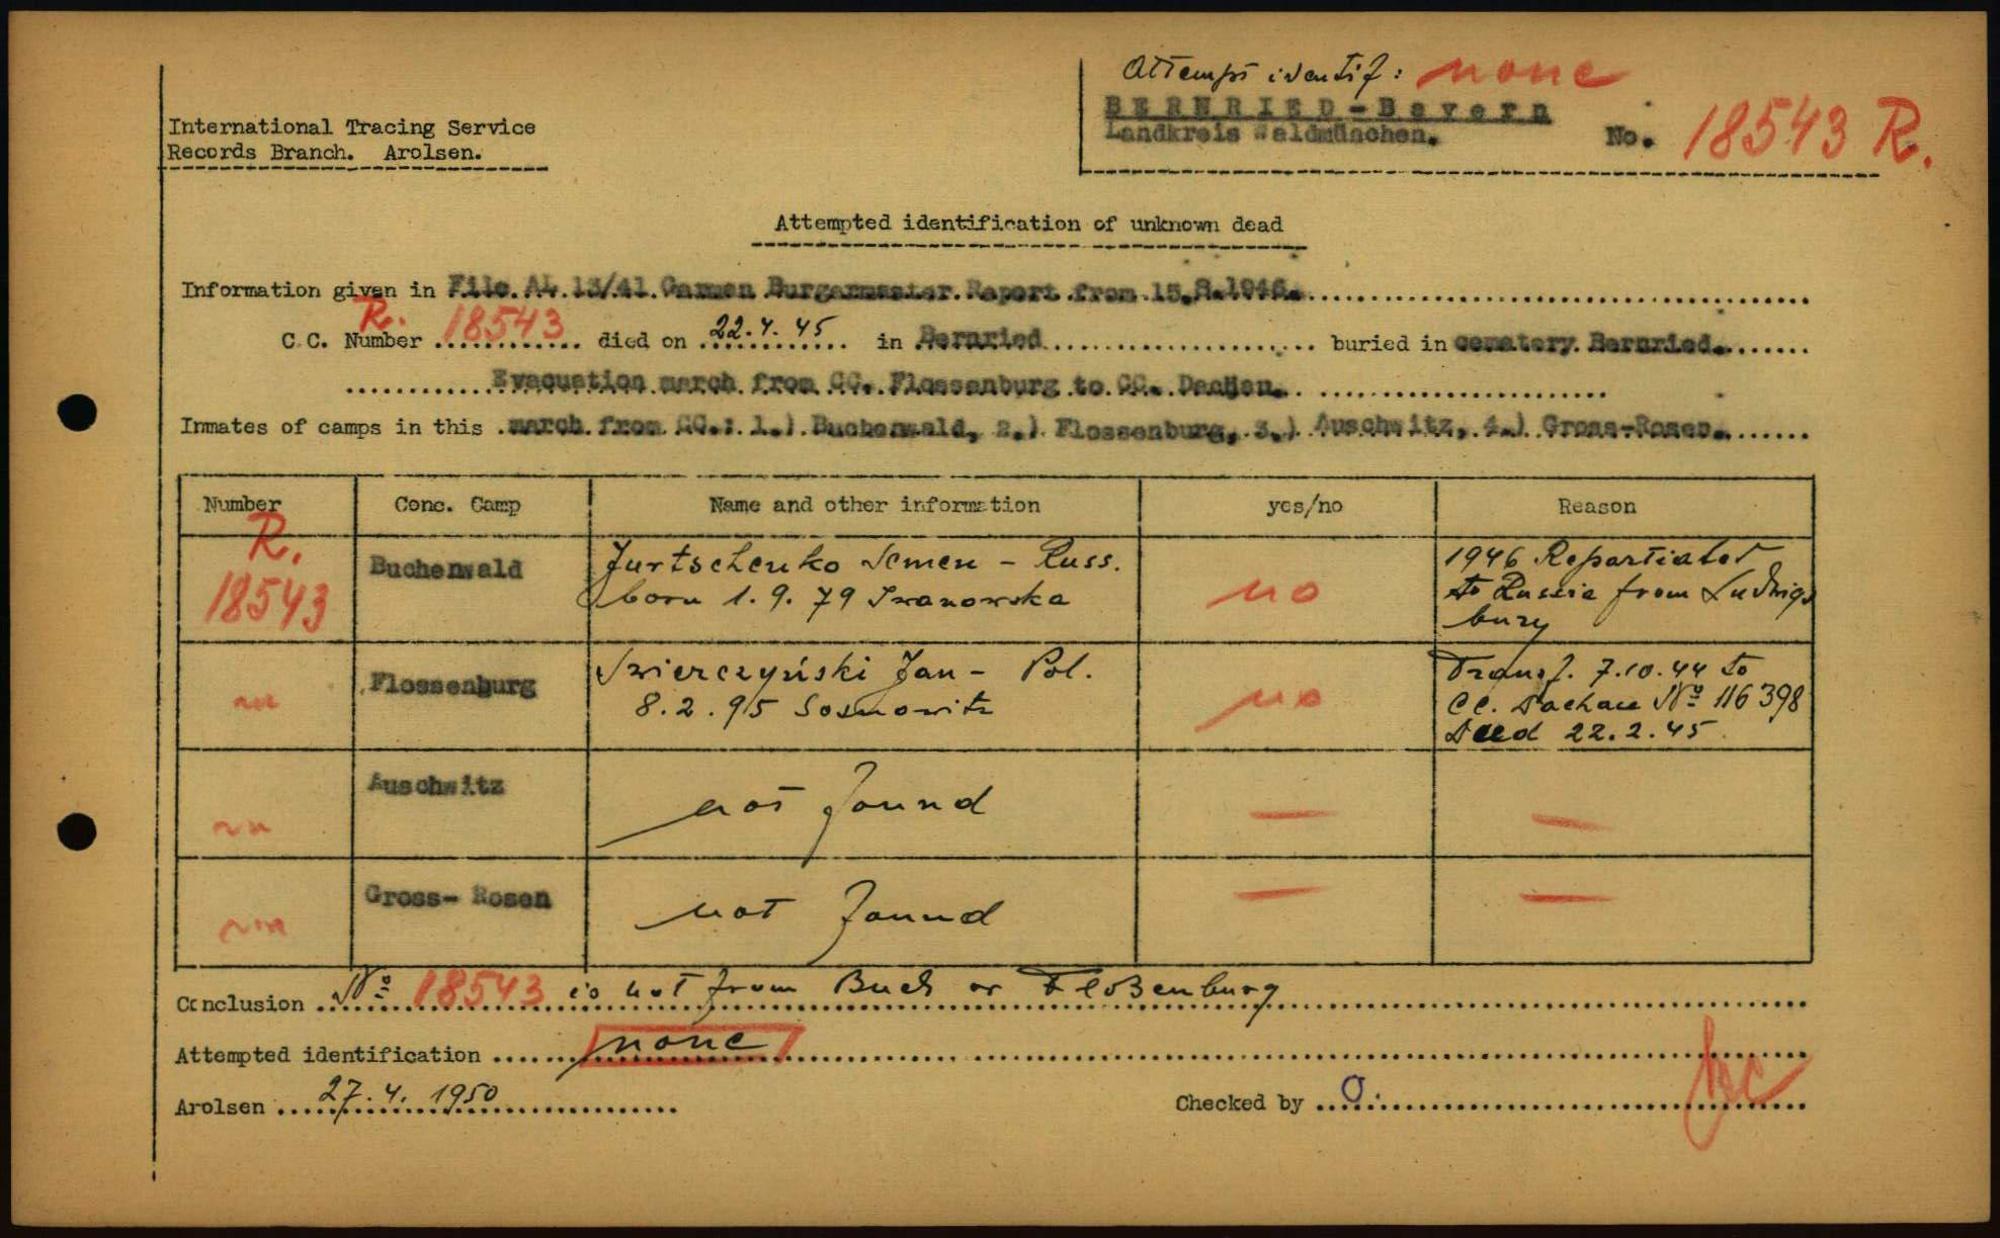 Attempt identif: none
BERNRIED-Bayern
Landkreis Waldmünchen. No. 18543 R.
International Tracing Service
Records Branch. Arolsen.
Attempted identification of unknown dead
Information given in File AL 13/41 German Burgermaster Report from 15.8.1946.
R.
C.C. Number 18543 died on 22.4.45 in Bernried buried in cematery Bernried.
Evacuation march from CC. Flossenburg to CC. Dachen.
Inmates of camps in this march from CC.: 1.) Buchenwald, 2.) Flossenburg, 3.) Auschwitz, 4.) Gross-Rosen.
Number Conc. Camp Name and other information yes/no Reason
R.
18543
Buchenwald
Jurtschenko Semen - Russ.
born 1.9.79 Iwanowska
no
1946 Repartiated
to Russia from Ludwigs
burg
Flossenburg
Swierczyński Jan - Pol.
8.2.95 Sosnowitz
no
Transf. 7.10.44 to
CC. Dachau Nº 116398
Died 22.2.45
Auschwitz
not found
Gross-Rosen
not found
Conclusion Nº 18543 is not from Buch or Floßenburg
Attempted identification none
Arolsen 27.4.1950
Checked by